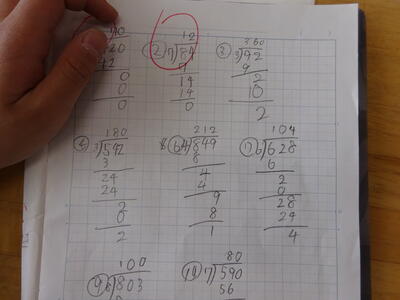 40 12 360
420 ② 7)84 ③ 3)92
42 7 9
0 14 2
0 14 10
0 0 2
④ 180 212 104
3)542 ⑥ 4)849 ⑦ 6)628
3 8 6
24 4 2
24 4 0
2 9 28
0 8 24
2 1 4
100 80
⑨ 8)803 ⑩ 7)590
8 56